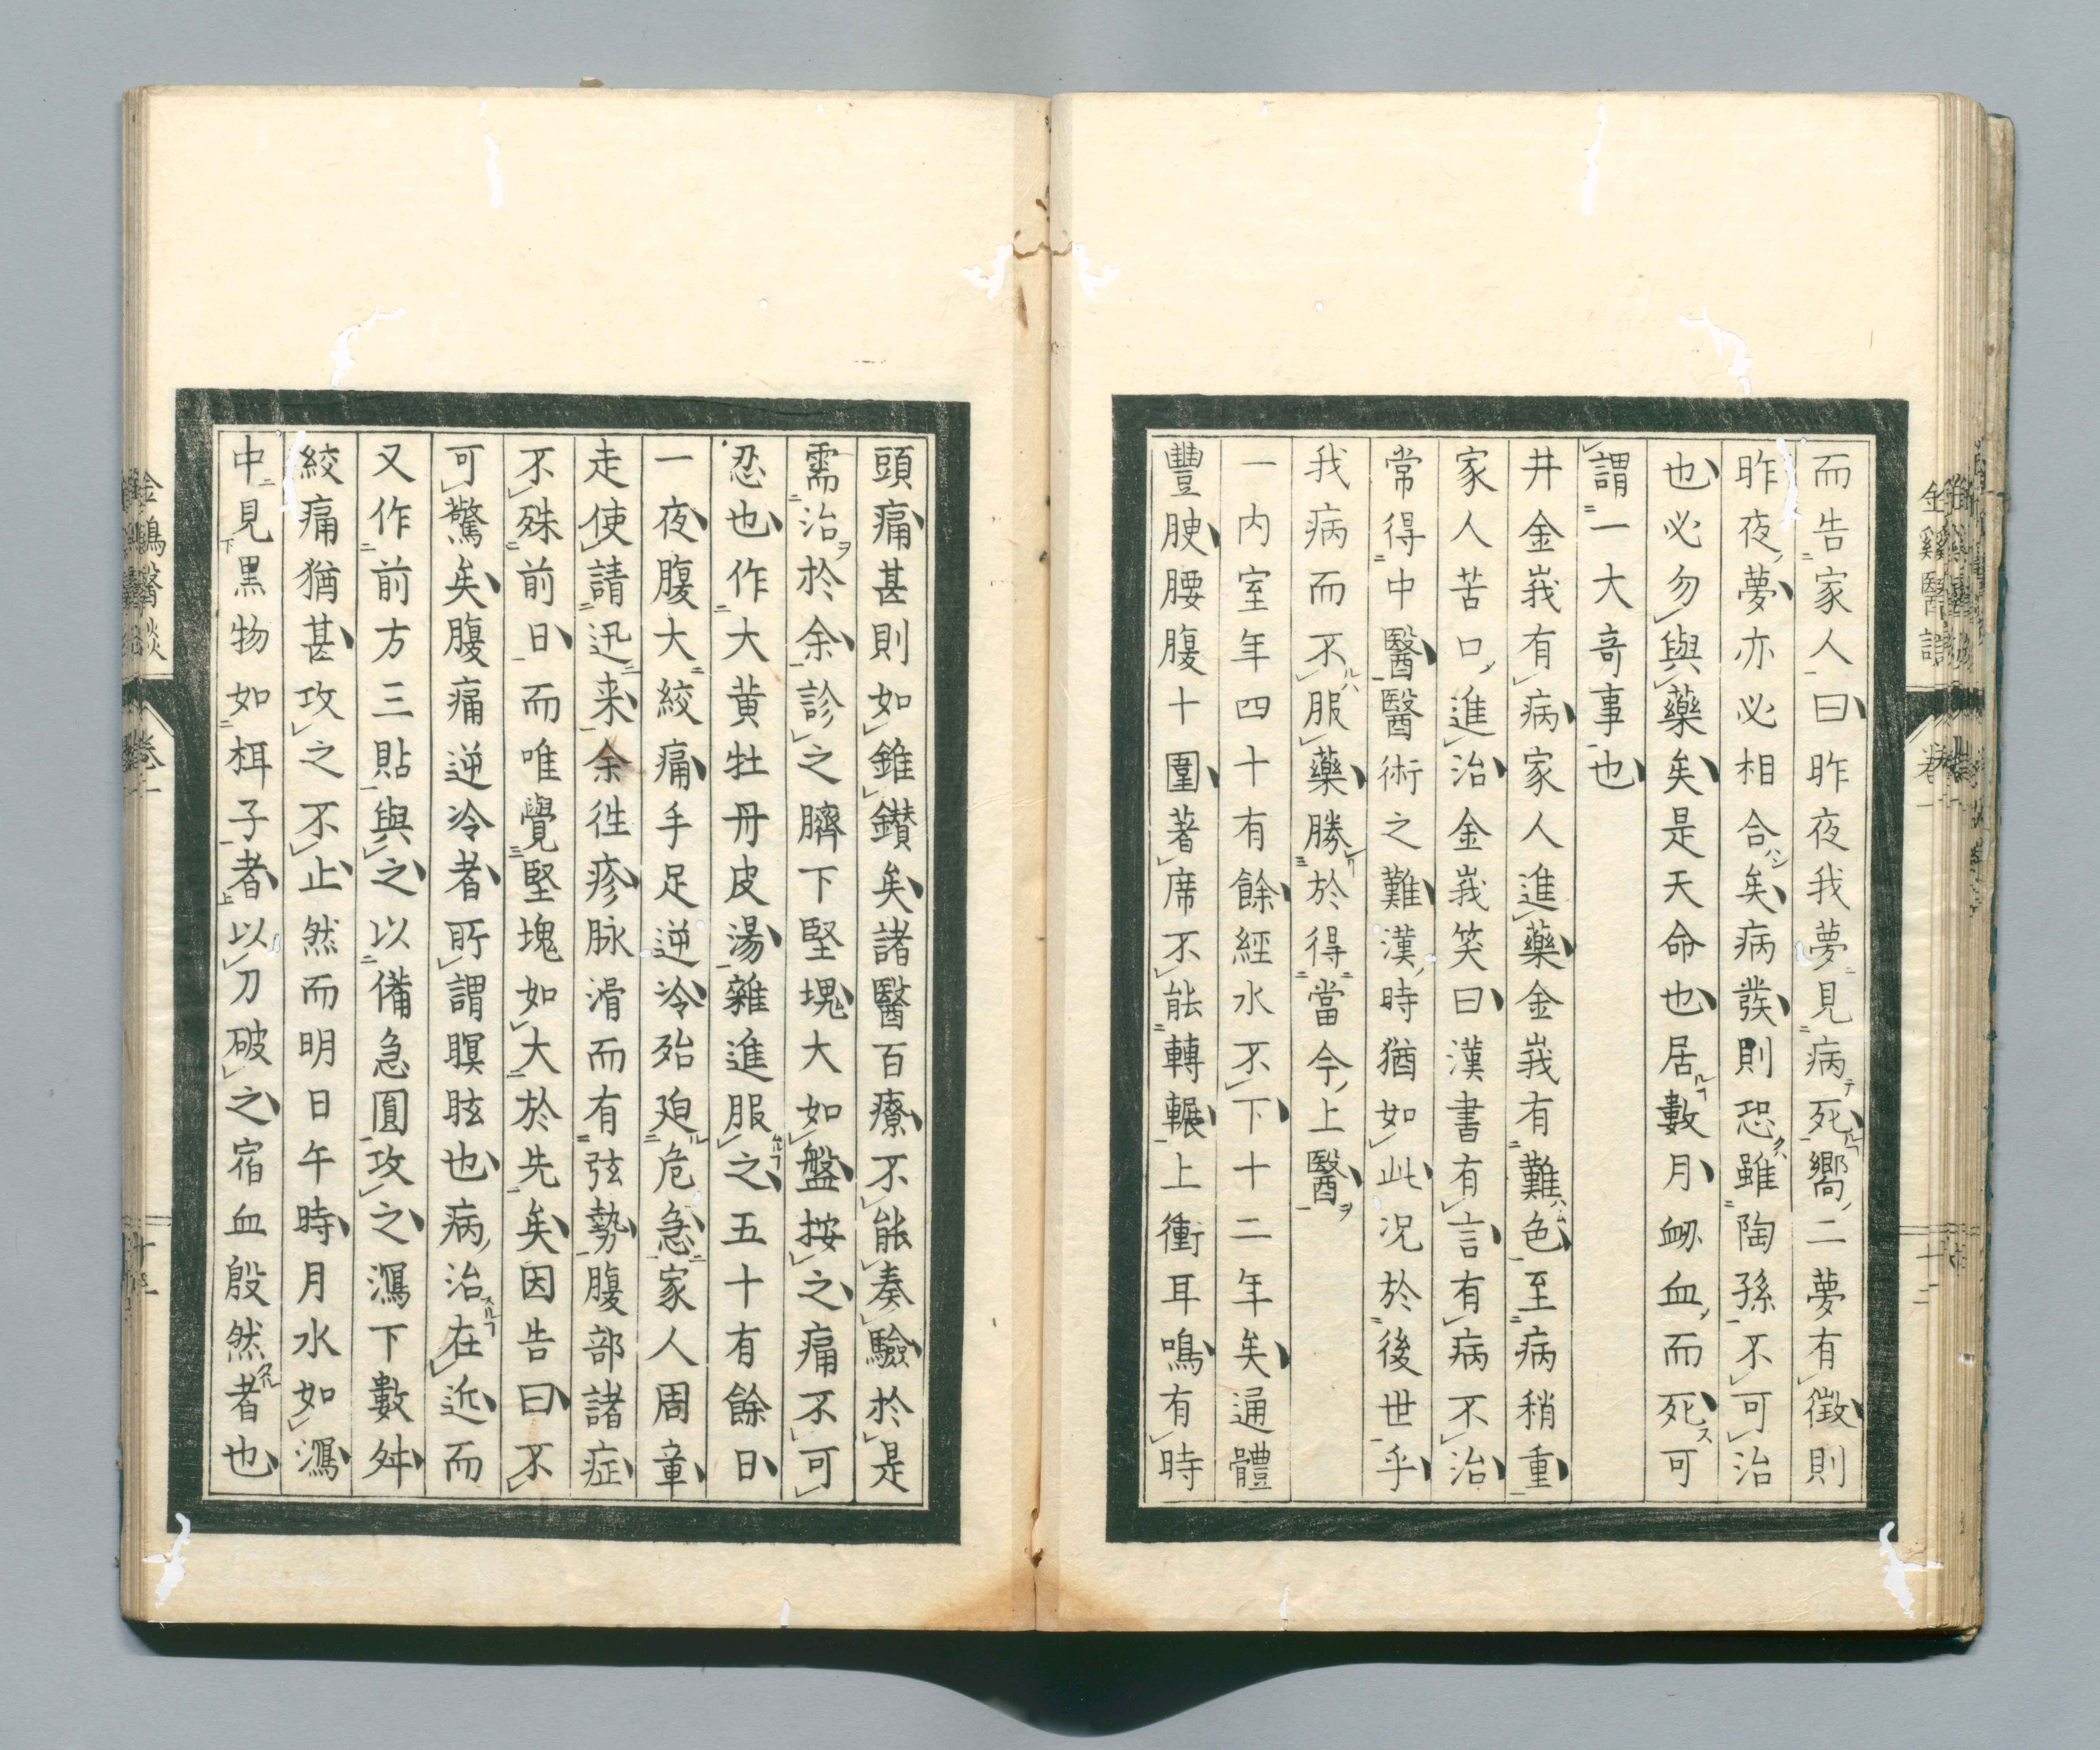 而告家人曰昨夜我夢見病死嚮二夢有徴則
昨夜夢亦必相合矣病發則恐雖陶孫不可治
也必勿與藥矣是天命也居數月衂血而死可
謂一大奇事也
井金峩有病家人進藥金峩有難色至病稍重
家人苦口進治金峩笑曰漢書有言有病不治
常得中醫醫術之難漢時猶如此况於後世乎
我病而不服藥勝於得當今上醫
一内室年四十有餘經水不下十二年矣通體
豐腴腰腹十圍著席不能轉輾上衝耳鳴有時
頭痛甚則如錐鑚矣諸醫百療不能奏驗於是
需治於余診之臍下堅塊大如盤按之痛不可
忍也作大黄牡丹皮湯雜進服之五十有餘日
一夜腹大絞痛手足逆冷殆廹危急家人周章
走使請迅来余徃疹脉滑而有弦勢腹部諸症
不殊前日而唯覺堅塊如大於先矣因告曰不
可驚矣腹痛逆冷者所謂瞑眩也病治在近而
又作前方三貼與之以備急圓攻之瀉下數舛
絞痛猶甚攻之不止然而明日午時月水如瀉
中見黒物如栮子者以刀破之宿血殷然者也